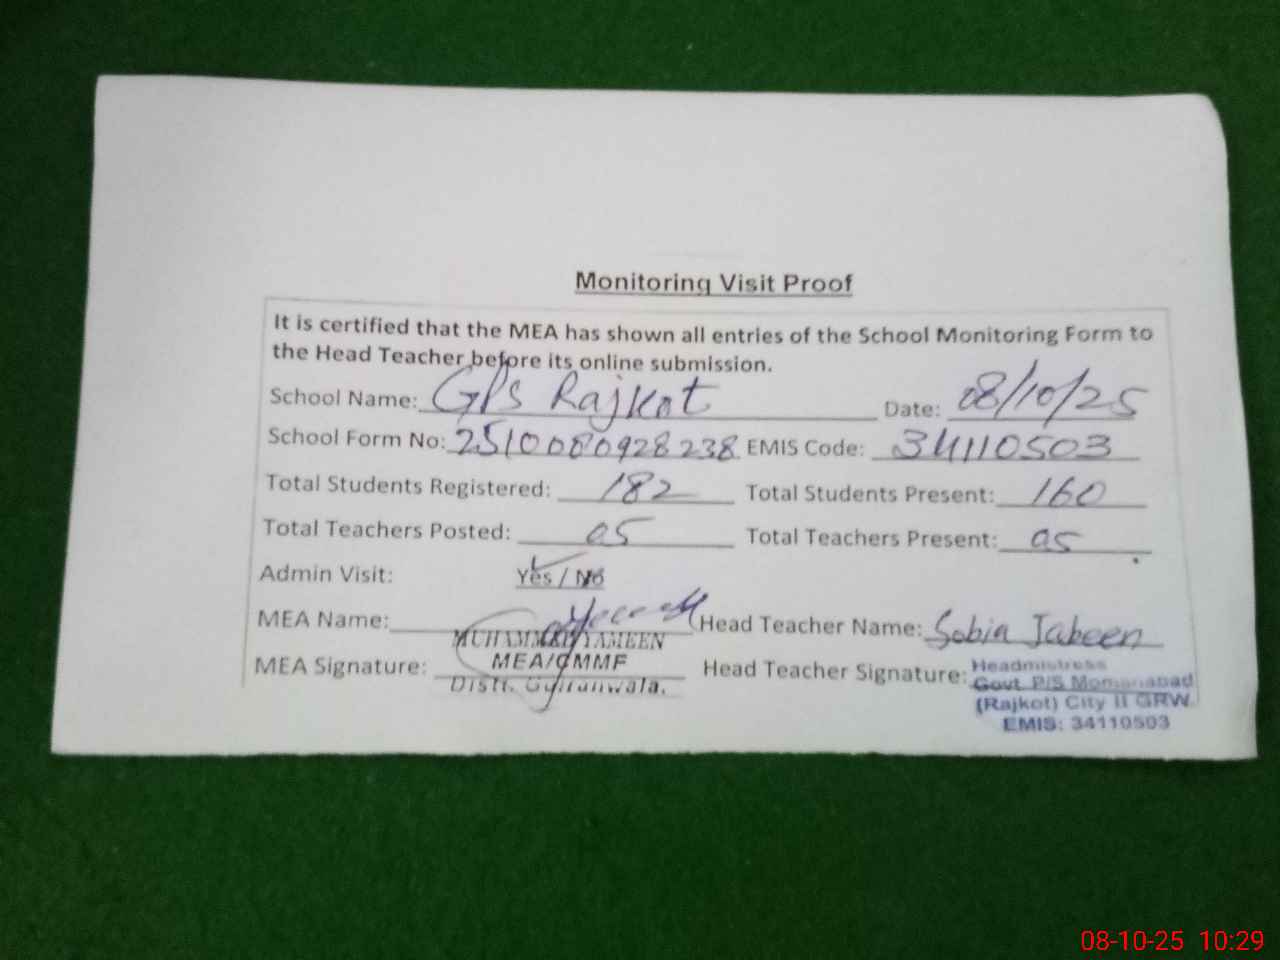 Monitoring Visit Proof
It is certified that the MEA has shown all entries of the School Monitoring Form to
the Head Teacher before its online submission.
School Name: GPS Rajkot Date: 08/10/25
School Form No: 2510080928238 EMIS Code: 34110503
Total Students Registered: 182 Total Students Present: 160
Total Teachers Posted: 05 Total Teachers Present: 05
Admin Visit: Yes / No
MEA Name: Head Teacher Name: Sobia Jabeen
MUHAMMAD YAMEEN
MEA Signature: MEA/CMMF Head Teacher Signature: Headmistress
Distt. Gujranwala. Govt. P/S Momanabad
(Rajkot) City II GRW.
EMIS: 34110503
08-10-25 10:29